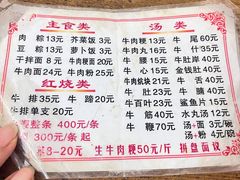 主食类
肉粽13元 芥菜饭3元
豆粽13元 萝卜饭3元
干拌面8元 牛肉粳面20元
牛肉面24元 牛肉粉25元
红烧类
牛排35元 牛蹄20元
牛排单支20元
整条400元/条
300元/条起
8-20元
汤类
牛肉粳13元 牛尾60元
牛肉丸16元 牛什35元
牛腰15元 牛肚岸40元
牛心15元 金钱肚40元
牛舌21元
牛肚23元 牛杂20元
牛百叶23元 鲨鱼片15元
牛筋40元 水丸汤12元
牛鞭70元 汤+面3元/碗
汤+粉4元/碗
生牛肉粳50元/斤 拼盘面议